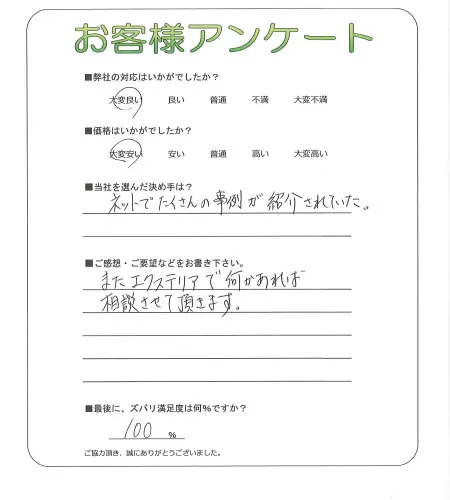 お客様アンケート
■弊社の対応はいかがでしたか？
大変良い 良い 普通 不満 大変不満
■価格はいかがでしたか？
大変安い 安い 普通 高い 大変高い
■当社を選んだ決め手は？
ネットでたくさんの事例が紹介されていた。
■ご感想・ご要望などをお書き下さい。
またエクステリアで何かあれば
相談させて頂きます。
■最後に、ズバリ満足度は何%ですか？
100 %
ご協力頂き、誠にありがとうございました。